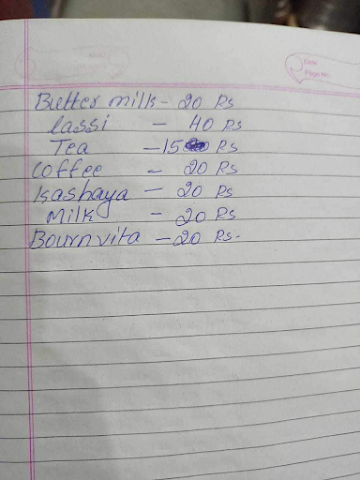 Date
Page No.
Butter milk - 20 Rs
lassi - 40 Rs
Tea - 15 Rs
Coffee - 20 Rs
Kashaya - 20 Rs
Milk - 20 Rs
Bournvita - 20 Rs.